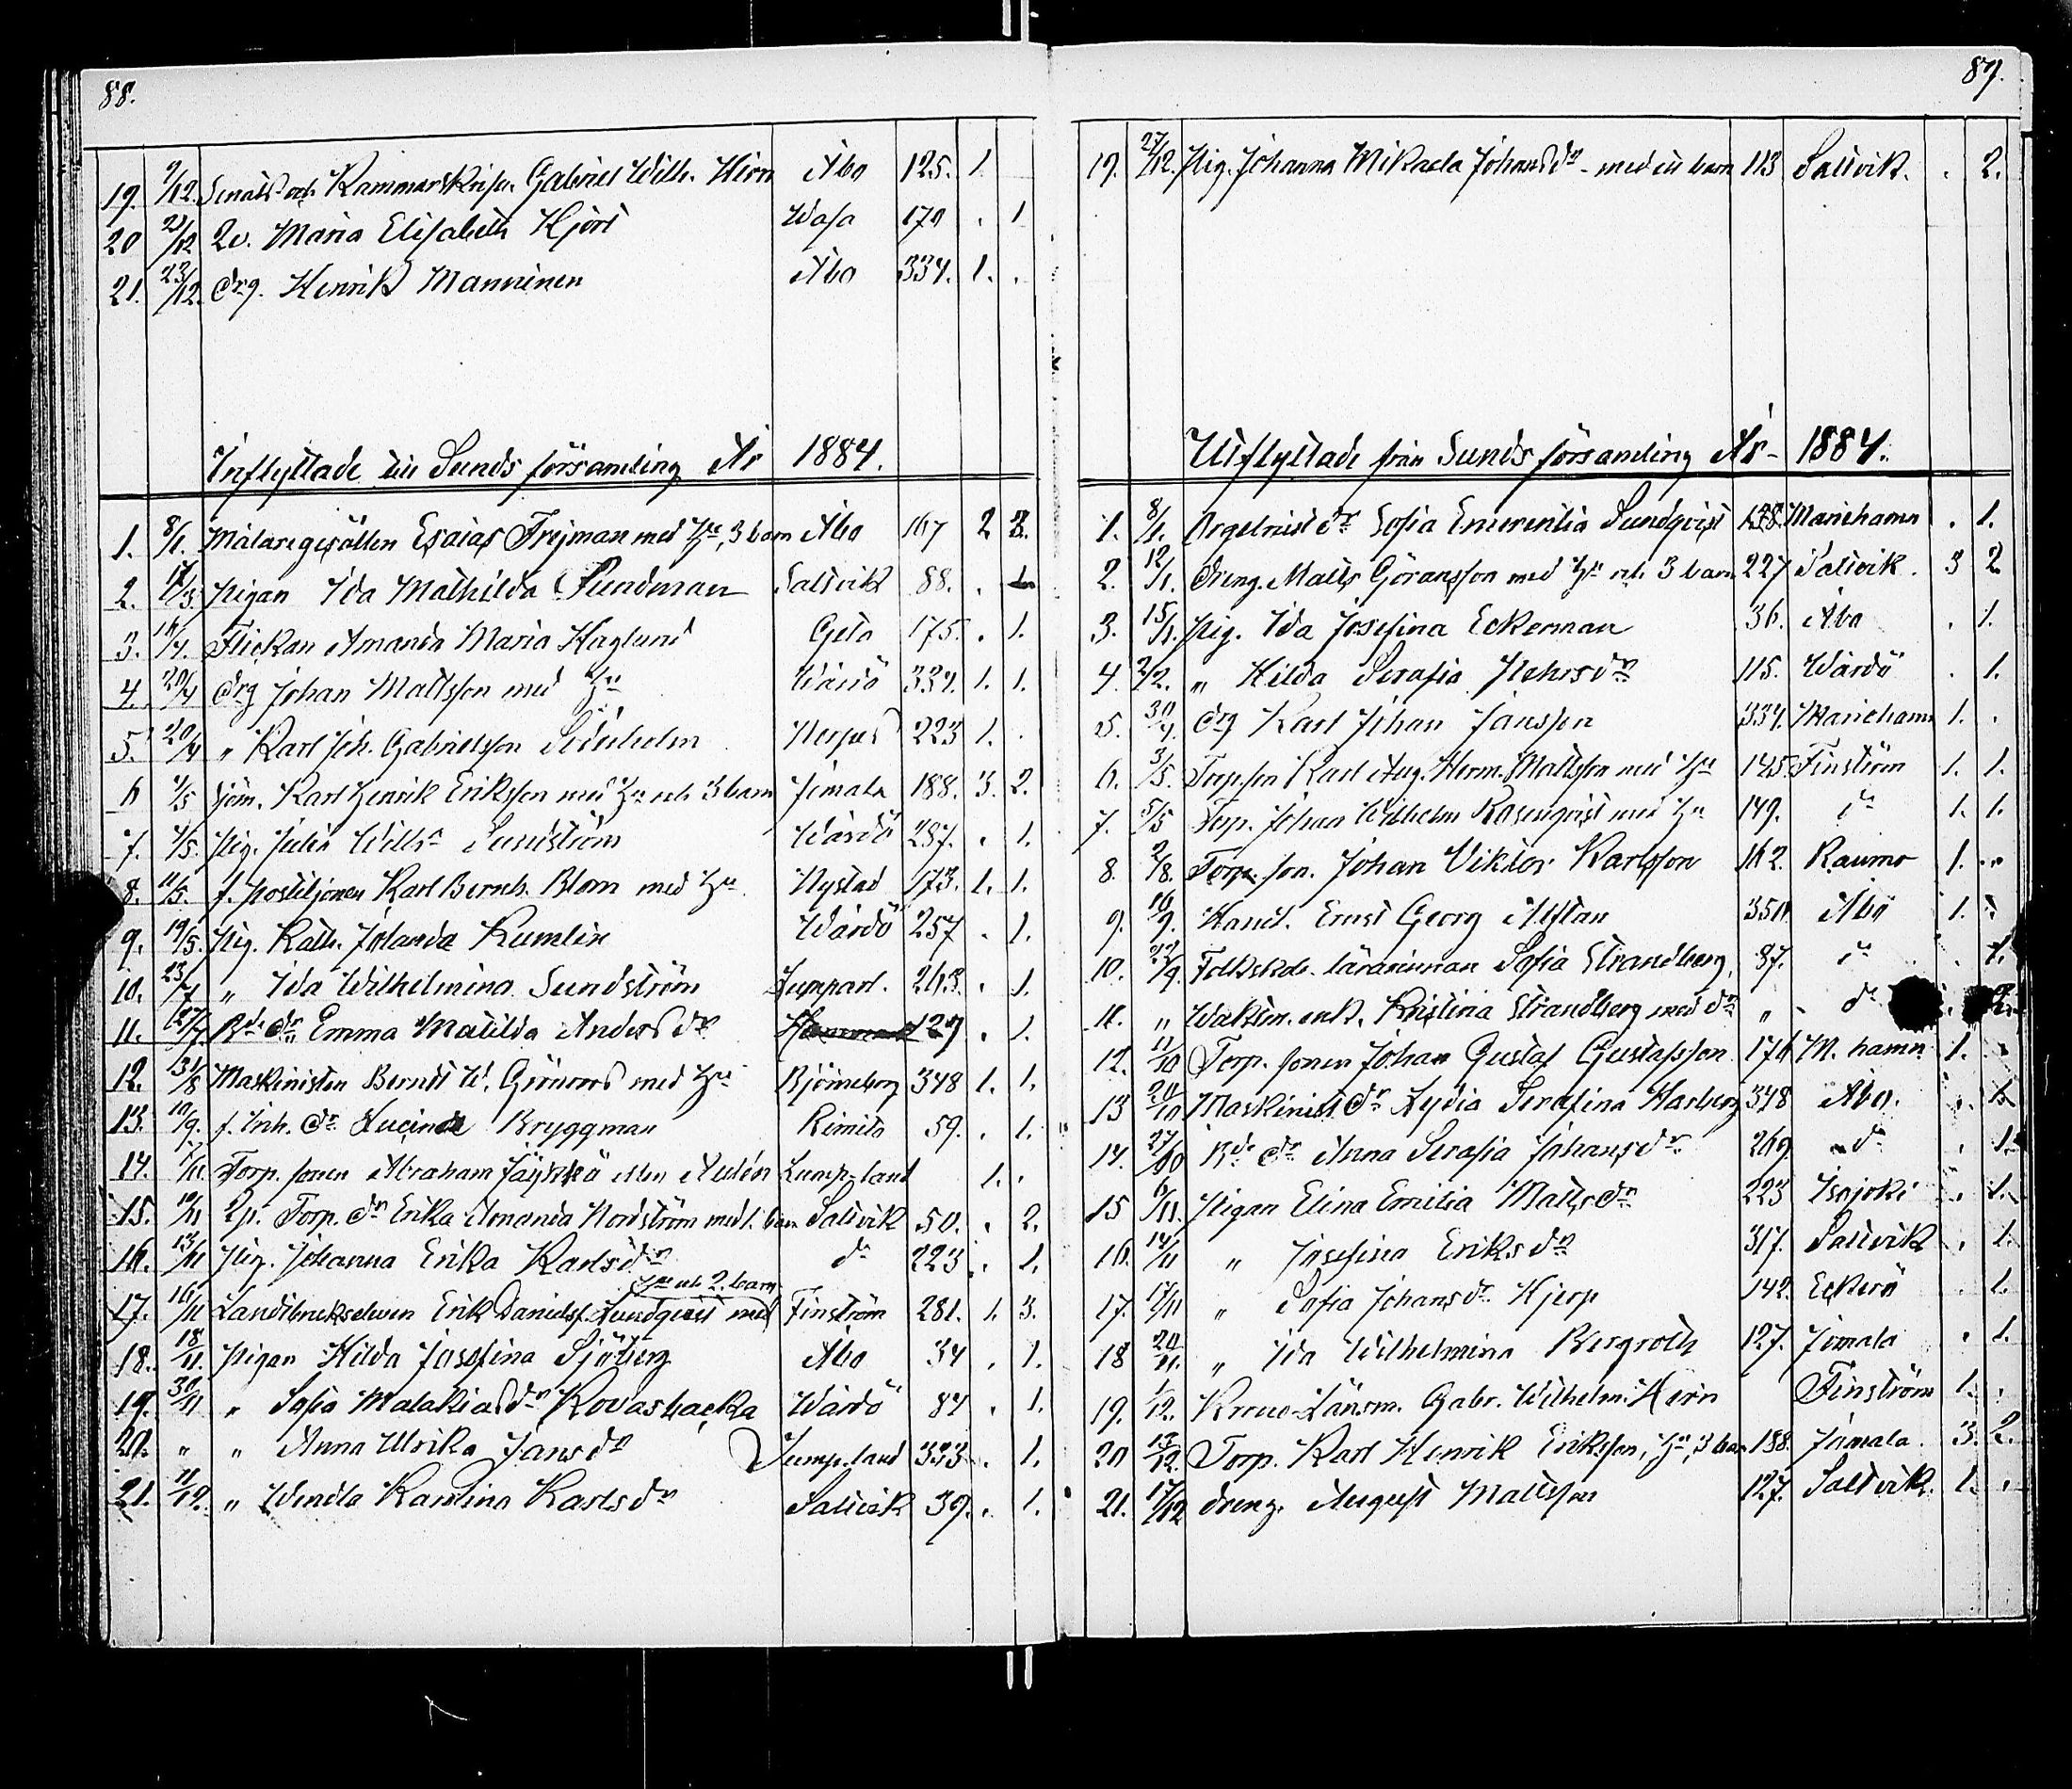 88.
19. 9/12. Senats och Kammarskrifv. Gabriel Wilh. Hirn Åbo 125. 1.
20 21/12 Qv. Maria Elisabeth Hjort Wasa 179 . 1.
21. 23/12. Drg. Henrik Manninen Åbo 334. 1. .
Inflyttade till Sunds församling År 1884.
1. 8/1. Målaregesällen Esaias Frejman med Hu, 3 barn Åbo 167 2 3.
2. Pigan Ida Mathilda Sundman Saltvik 88. . 1.
3. 14/4. Flickan Amanda Maria Haglund Geta 175. . 1.
4. 20/4 Drg Johan Mattsson med Hu Wårdö 339. 1. 1.
5. 20/4 " Karl Joh. Gabrielsson Söderholm 223 1. .
6 4/5 Sjöm. Karl Henrik Eriksson med Hu och 3 barn Jomala 188. 3. 2.
7. 4/5. Pig. Julia Wilh:a Sundström Wårdö 287. . 1.
8. 11/5. f. postiljonen Karl Bernh. Blom med Hu Nystad 173. 1. 1.
9. 19/5. Pig. Kath. Jolanda Kumlin Wårdö 257 . 1.
10. 23/7 " Ida Wilhelmina Sundström Lumparl. 263. . 1.
11. 27/7 Bd. dr Emma Matilda Andersdr 127 . 1.
12. 31/8 Maskinisten Berndt W. Grönroos med Hu Björneborg 348 1. 1.
13. 10/9. f. Inh. dr Lucinda Bryggman Rimito 59. . 1.
14. Torp. sonen Abraham Jäykkä eller Aulén Lumpland 1. .
15. 10/11 Qp. Torp. dr Erika Amanda Nordström med 1. barn Saltvik 50. . 2.
16. 13/11 Pig. Johanna Erika Karlsdr do 223 . 1.
Hu och 2. barn
17. 16/11 Landtbrukseleven Erik Danielss. Lundqvist med Finström 281. 1. 3.
18. 18/11. Pigan Hilda Josefina Sjöberg Åbo 34 . 1.
19. 30/11 " Sofia Malakiasdr Kovasbacka Wårdö 84 . 1.
20. " " Anna Ulrika Jansdr Lumpland 333 . 1.
21. 11/12. " Wendla Karolina Karlsdr Saltvik 39. . 1.
89.
19. 27/12. Pig. Johanna Mikaela Johansdr - med ett barn 113 Saltvik. . 2.
Utflyttade från Sunds församling År - 1884.
1. 8/1. Orgelnist dr Sofia Emerentia Sundqvist 128. Mariehamn . 1.
2. 12/1. Dreng. Matts Göransson med Hu och 3 barn 227 Saltvik. 3 2
3. 15/1. Pig. Ida Josefina Eckerman 36. Åbo . 1.
4. 2/2. " Hilda Serafia Pehrsdr 115. Wårdö . 1.
5. 30/4. Drg Karl Johan Jansson 334. Mariehamn 1. .
6. 3/5. Torp.son Karl Aug. Herm. Mattsson med Hu 145. Finström 1. 1.
7. 5/5 Torp. Johan Wilhelm Rosenqvist med Hu 149. do 1. 1.
8. 2/8. Torp. son. Johan Viktor Karlsson 162. Raumo 1. .
9. 16/9. Handl. Ernst Georg 350. Åbo 1. .
10. Folkskole lärarinnan Sofia Strandberg 37. do . 1.
11. " Waktm. enk. Kristina Strandberg med dr " do . 2.
12. 11/10 Torp. sonen Johan Gustaf Gustafsson 174 M. hamn 1. .
13 20/10 Maskinist dr Lydia Serafina Harberg 348 Åbo. . 1.
14. 27/10 Bd. dr Anna Serafia Johansdr 269. do . 1.
15 6/11. Pigan Elina Emilia Mattsdr 223 Isojoki . 1.
16. 14/11 " Josefina Eriksdr 317. Saltvik . 1.
17. 17/11 " Sofia Johansdr Hjerp 142. Eckerö . 1.
18 20/11. " Ida Wilhelmina Bergroth 127. Jomala . 1.
19. 1/12. Krono-Länsm. Gabr. Wilhelm. Hirn Finström 1. .
20 13/12. Torp. Karl Henrik Eriksson, Hu, 3 barn 188. Jomala. 3. 2.
21. 17/12 Dreng. August Mattsson 127. Saltvik. 1. .